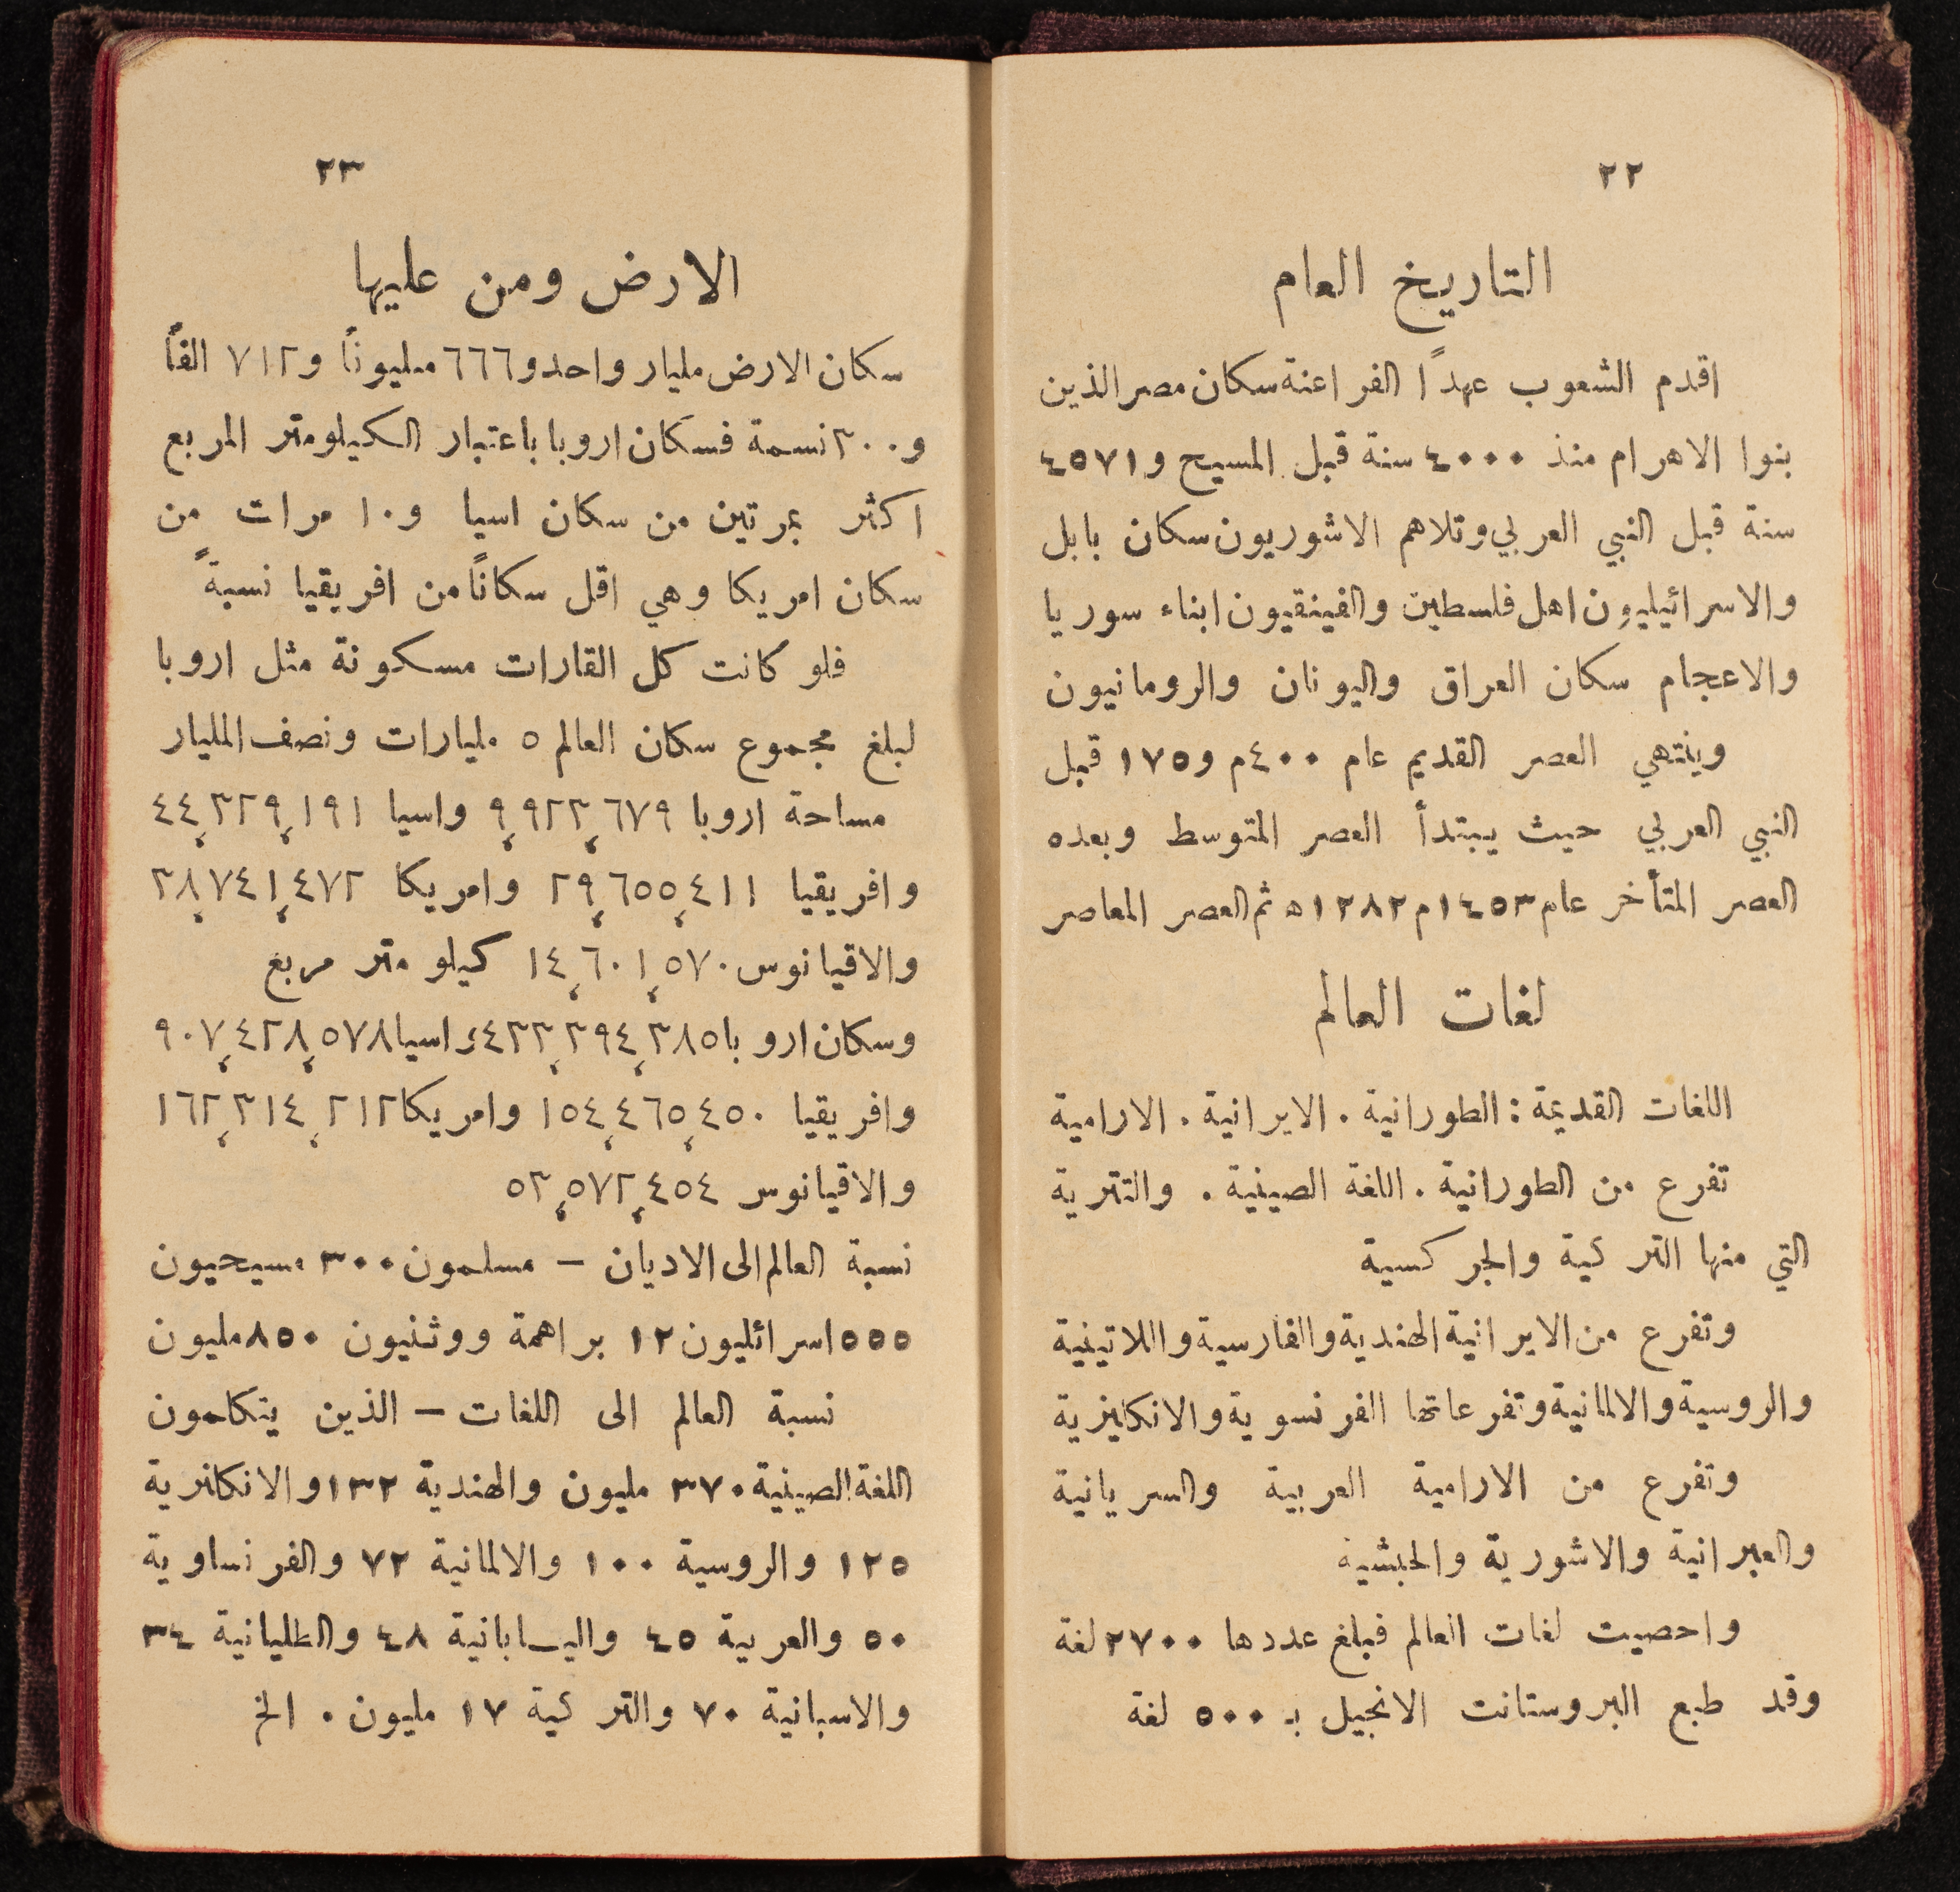 ٢٢
التاريخ العام
اقدم الشعوب عهداً الفراعنة سكان مصر الذين
بنوا الاهرام منذ ٤٠٠٠ سنة قبل المسيح و٤٥٧١
سنة قبل النبي العربي وتلاهم الاشوريون سكان بابل
والاسرائيليون اهل فلسطين والفينقيون ابناء سوريا
والاعجام سكان العراق واليونان والرومانيون
وينتهي العصر القديم عام ٤٠٠م و١٧٥ قبل
النبي العربي حيث يبتدأ العصر المتوسط وبعده
العصر المتأخر عام ١٤٥٣م ١٢٨٢ه ثم العصر المعاصر
لغات العالم
اللغات القديمة : الطورانية . الايرانية . الارامية
تفرع من الطورانية . اللغة الصينية . والتترية
التي منها التركية والجركسية
وتفرع من الايرانية الهندية والفارسية واللاتينية
والروسية والالمانية وتفرعاتها الفرنسوية والانكليزية
وتفرع من الارامية العربية والسريانية
والعبرانية والاشورية والحبشية
واحصيت لغات العالم فبلغ عددها ٢٧٠٠ لغة
وقد طبع البروستانت الانجيل بـ ٥٠٠ لغة
٢٣
الارض ومن عليها
سكان الارض مليار واحد و٦٦٦ مليوناً و٧١٢ الفاً
و٣٠٠ نسمة فسكان اروبا باعتبار الكيلومتر المربع
اكثر بمرتين من سكان اسيا و١٠ مرات من
سكان امريكا وهي اقل سكاناً من افريقيا نسبةً
فلو كانت كل القارات مسكونة مثل اروبا
لبلغ مجموع سكان العالم ٥ مليارات ونصف المليار
مساحة اروبا ٩،٩٢٣،٦٧٩ واسيا ٤٤،٣٢٩،١٩١
وافريقيا ٢٩،٦٥٥،٤١١ وامريكا ٣٨،٧٤١،٤٧٢
والاقيانوس ١٤،٦٠١،٥٧٠ كيلو متر مربع
وسكان اروبا ٤٣٣،٣٩٤،٣٨٥ واسيا ٩٠٧،٤٣٨،٥٧٨
وافريقيا ١٥٤،٤٦٥،٤٥٠ وامريكا ١٦٢،٣١٤،٢١٢
والاقيانوس ٥٣،٥٧٢،٤٥٤
نسبة العالم الى الاديان – مسلمون ٣٠٠ مسيحيون
٥٥٥ اسرائليون ١٢ براهمة ووثنيون ٨٥٠ مليون
نسبة العالم الى اللغات – الذين يتكلمون
اللغة الصينية ٣٧٠ مليون والهندية ١٣٢ والانكلزية
١٢٥ والروسية ١٠٠ والالمانية ٧٢ والفرنساوية
٥٠ والعربية ٤٥ واليابانية ٤٨ والطليانية ٣٤
والاسبانية ٧٠ والتركية ١٧ مليون . الخ